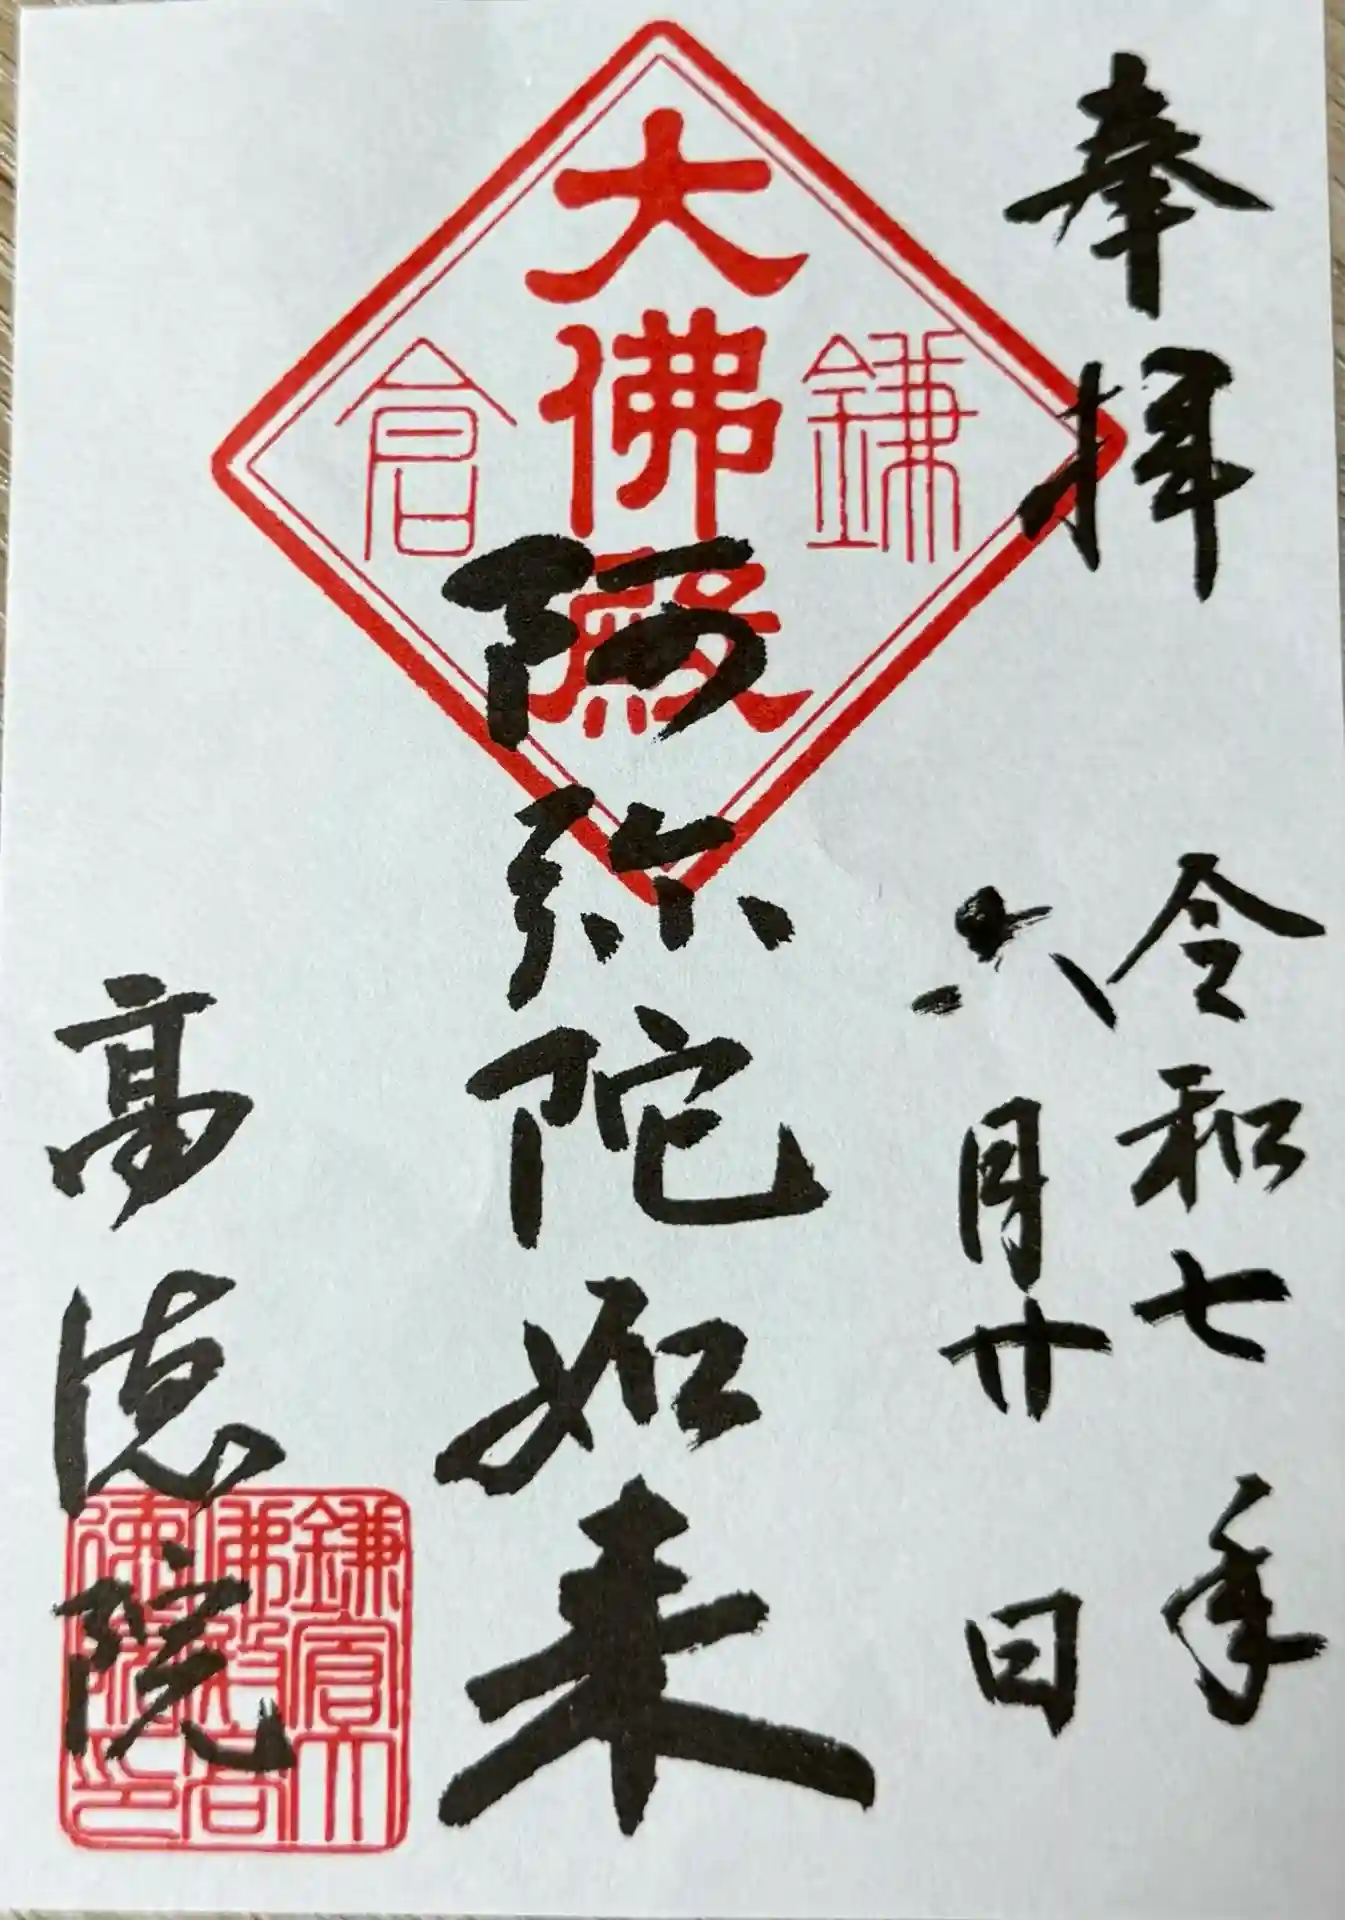 奉拝
令和七年
六月廿日
大佛殿
鎌倉
阿弥陀如来
高徳院
鎌倉大
佛殿高
徳院印